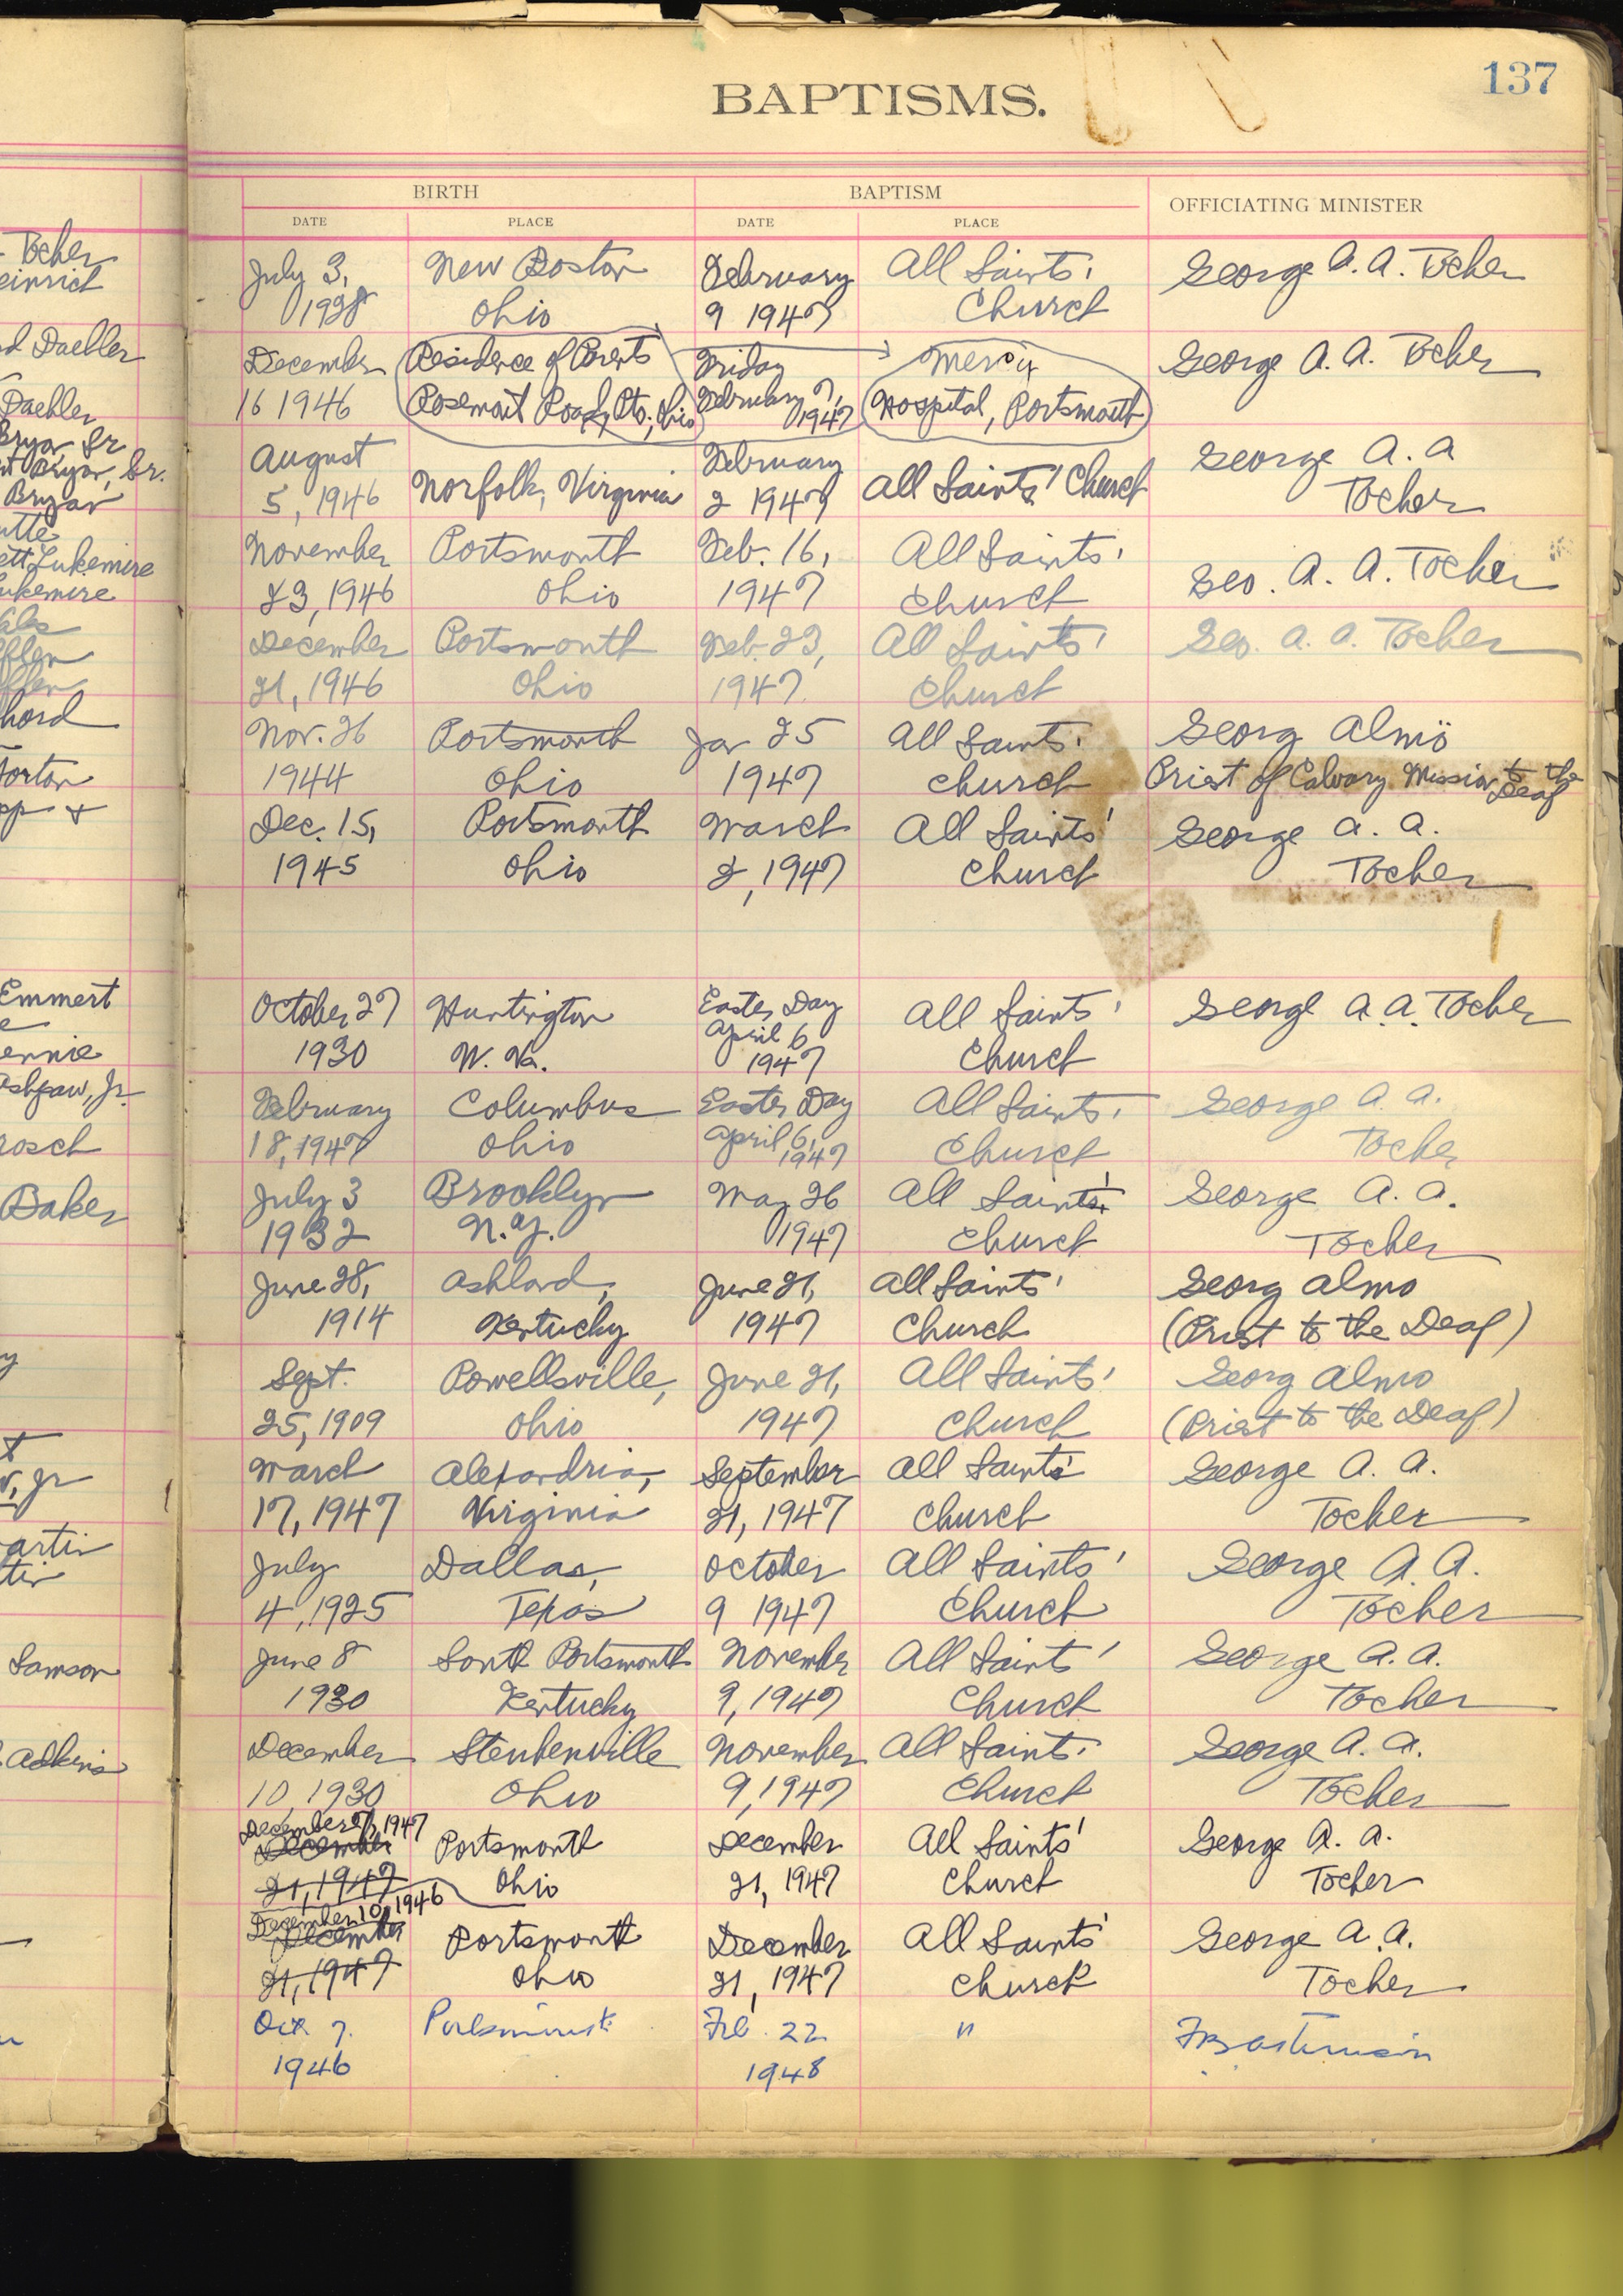 137
BAPTISMS.
BIRTH BAPTISM OFFICIATING MINISTER
DATE PLACE DATE PLACE
Tocher
einrich
d Daehler
Daehler
Bryan, Sr
Bryan, Sr.
Bryan
utte
ett Lukemire
ukemire
hord
orton
Emmert
e
ennie
shpaw, Jr.
rosch
Baker
y
t
r, Jr
artin
tin
Samson
Adkins
July 3, New Boston February All Saints' George A. A. Tocher
1938 Ohio 9 1947 Church
December Residence of Parents Friday Mercy George A. A. Tocher
16 1946 Rosemont Road, Pts., Ohio February 7, 1947 Hospital, Portsmouth
August February George A. A
5, 1946 Norfolk, Virginia 2 1947 All Saints' Church Tocher
November Portsmouth Feb. 16, All Saints'
23, 1946 Ohio 1947 Church Geo. A. A. Tocher
December Portsmouth Feb. 23, All Saints' Geo. A. A. Tocher
21, 1946 Ohio 1947. Church
Nov. 26 Portsmouth Jan 25 All Saints' Georg Almo
1944 Ohio 1947 Church Priest of Calvary Mission to the Deaf
Dec. 15, Portsmouth March All Saints' George A. A.
1945 Ohio 2, 1947 Church Tocher
October 27 Huntington Easter Day All Saints' George A. A. Tocher
April 6
1930 W. Va. 1947 Church
February Columbus Easter Day All Saints' George A. A.
18, 1947 Ohio April 6, 1947 Church Tocher
July 3 Brooklyn May 26 All Saints' George A. A.
1932 N.Y. 1947 Church Tocher
June 28, Ashland, June 21, All Saints' Georg Almo
1914 Kentucky 1947 Church (Priest to the Deaf)
Sept. Powellsville, June 21, All Saints' Georg Almo
25, 1909 Ohio 1947 Church (Priest to the Deaf)
March Alexandria, September All Saints' George A. A.
17, 1947 Virginia 21, 1947 Church Tocher
July Dallas, October All Saints' George A. A.
4, 1925 Texas 9 1947 Church Tocher
June 8 South Portsmouth November All Saints' George A. A.
1930 Kentucky 9, 1947 Church Tocher
December Steubenville November All Saints' George A. A.
10 1930 Ohio 9, 1947 Church Tocher
December 1947
December Portsmouth December All Saints' George A. A.
21, 1947 Ohio 21, 1947 Church Tocher
December 10, 1946
December Portsmouth December All Saints' George A. A.
21, 1947 Ohio 21, 1947 Church Tocher
Oct. 7. Portsmouth Feb. 22 "
1946 1948